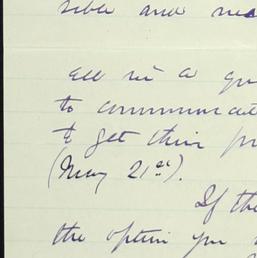 sible and
all in a
to communicate
to get their
(May 21st).
If the
the option you